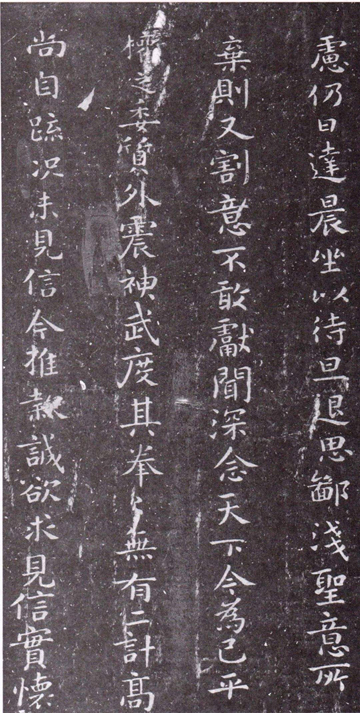 慮仍日達晨坐以待旦退思鄙淺聖意所
棄則又割意不敢獻聞深念天下今為已平
權之委質外震神武度其拳々無有二計高
尚自疏况未見信今推款誠欲求見信實懷